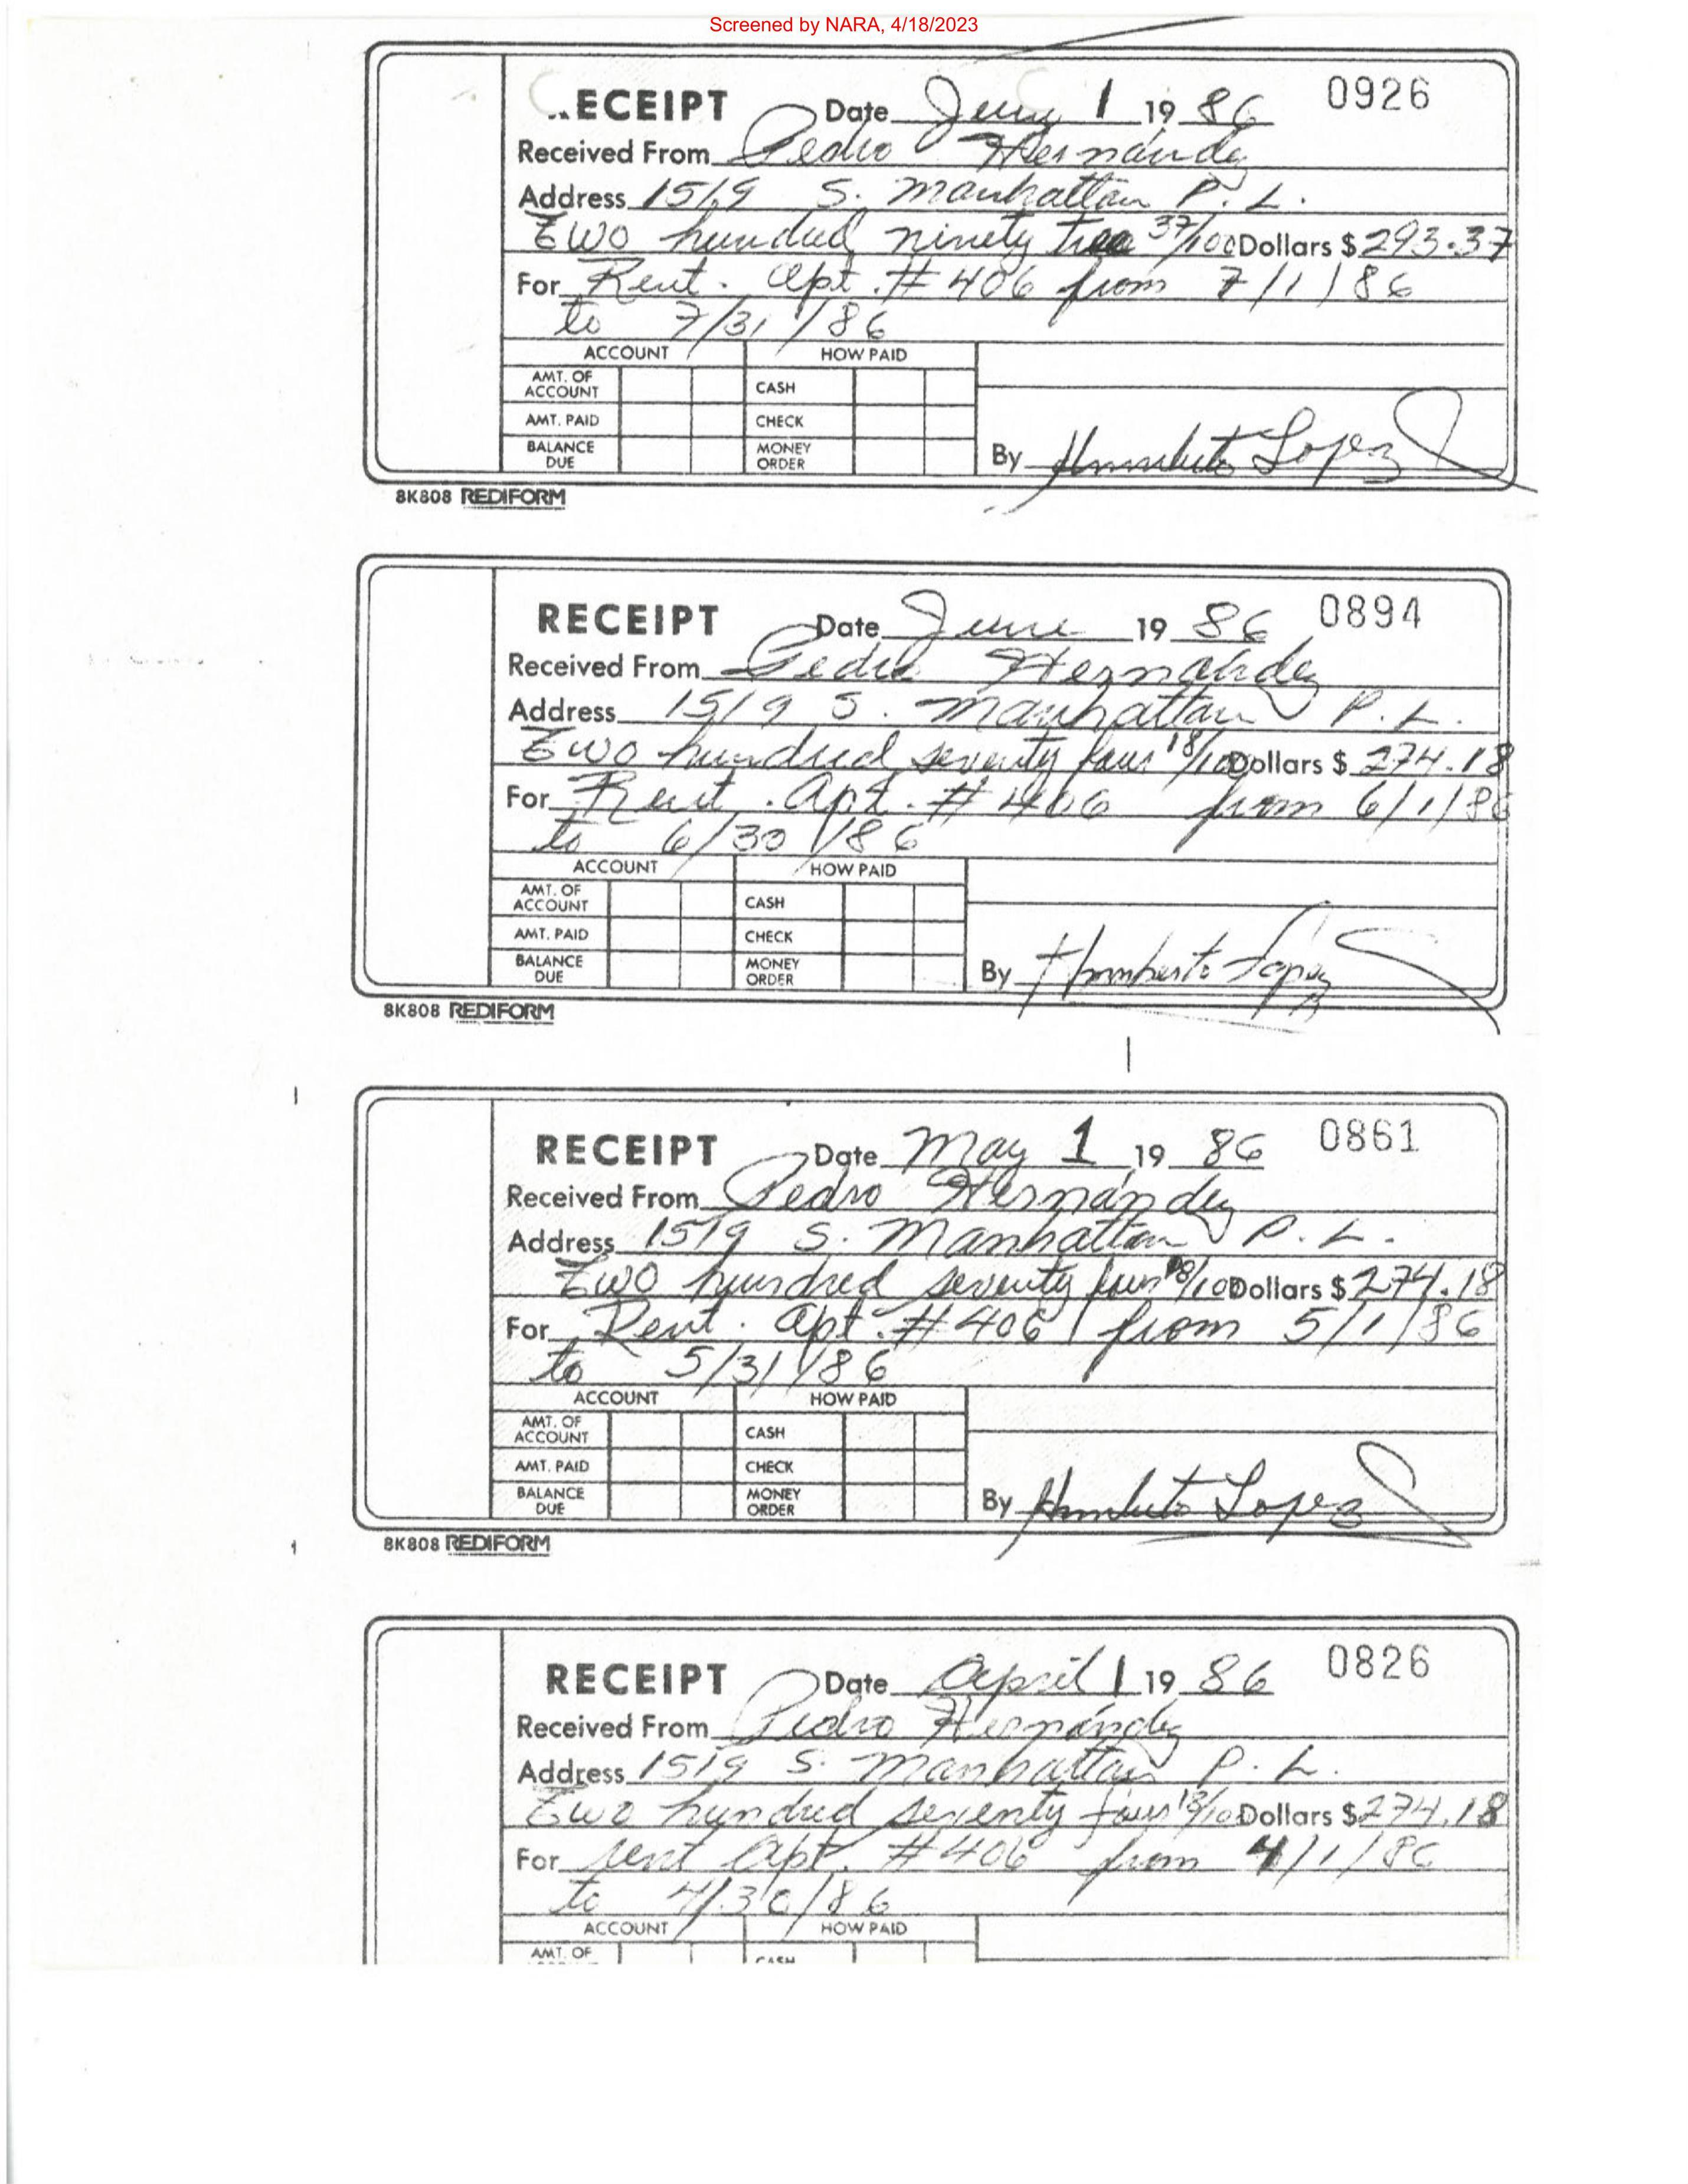 Screened by NARA, 4/18/2023
0926
ECEIPT Date 1 19 86
Received From Pedro Hernández
Address 1519 S. Manhattan P.L.
Two hundred ninety tree 37/100 Dollars $ 293.37
For Rent. Apt. # 406 from 7/1/86
to 7/31/86
ACCOUNT HOW PAID
AMT. OF ACCOUNT CASH
AMT. PAID CHECK
BALANCE DUE MONEY ORDER
By Humberto Lopez
8K808 REDIFORM
0894
RECEIPT Date June 19 86
Received From Pedro Hernández
Address 1519 S. Manhattan P.L.
Two hundred seventy four 18/100 Dollars $ 274.18
For Rent. Apt. # 406 from 6/1/86
to 6/30/86
ACCOUNT HOW PAID
AMT. OF ACCOUNT CASH
AMT. PAID CHECK
BALANCE DUE MONEY ORDER
By Humberto Lopez
8K808 REDIFORM
0861
RECEIPT Date May 1 19 86
Received From Pedro Hernández
Address 1519 S. Manhattan P.L.
Two hundred seventy four 18/100 Dollars $ 274.18
For Rent. Apt. # 406 from 5/1/86
to 5/31/86
ACCOUNT HOW PAID
AMT. OF ACCOUNT CASH
AMT. PAID CHECK
BALANCE DUE MONEY ORDER
By Humberto Lopez
8K808 REDIFORM
0826
RECEIPT Date April 1 19 86
Received From Pedro Hernández
Address 1519 S. Manhattan P.L.
Two hundred seventy four 18/100 Dollars $ 274.18
For rent Apt. # 406 from 4/1/86
to 4/30/86
ACCOUNT HOW PAID
AMT. OF CASH